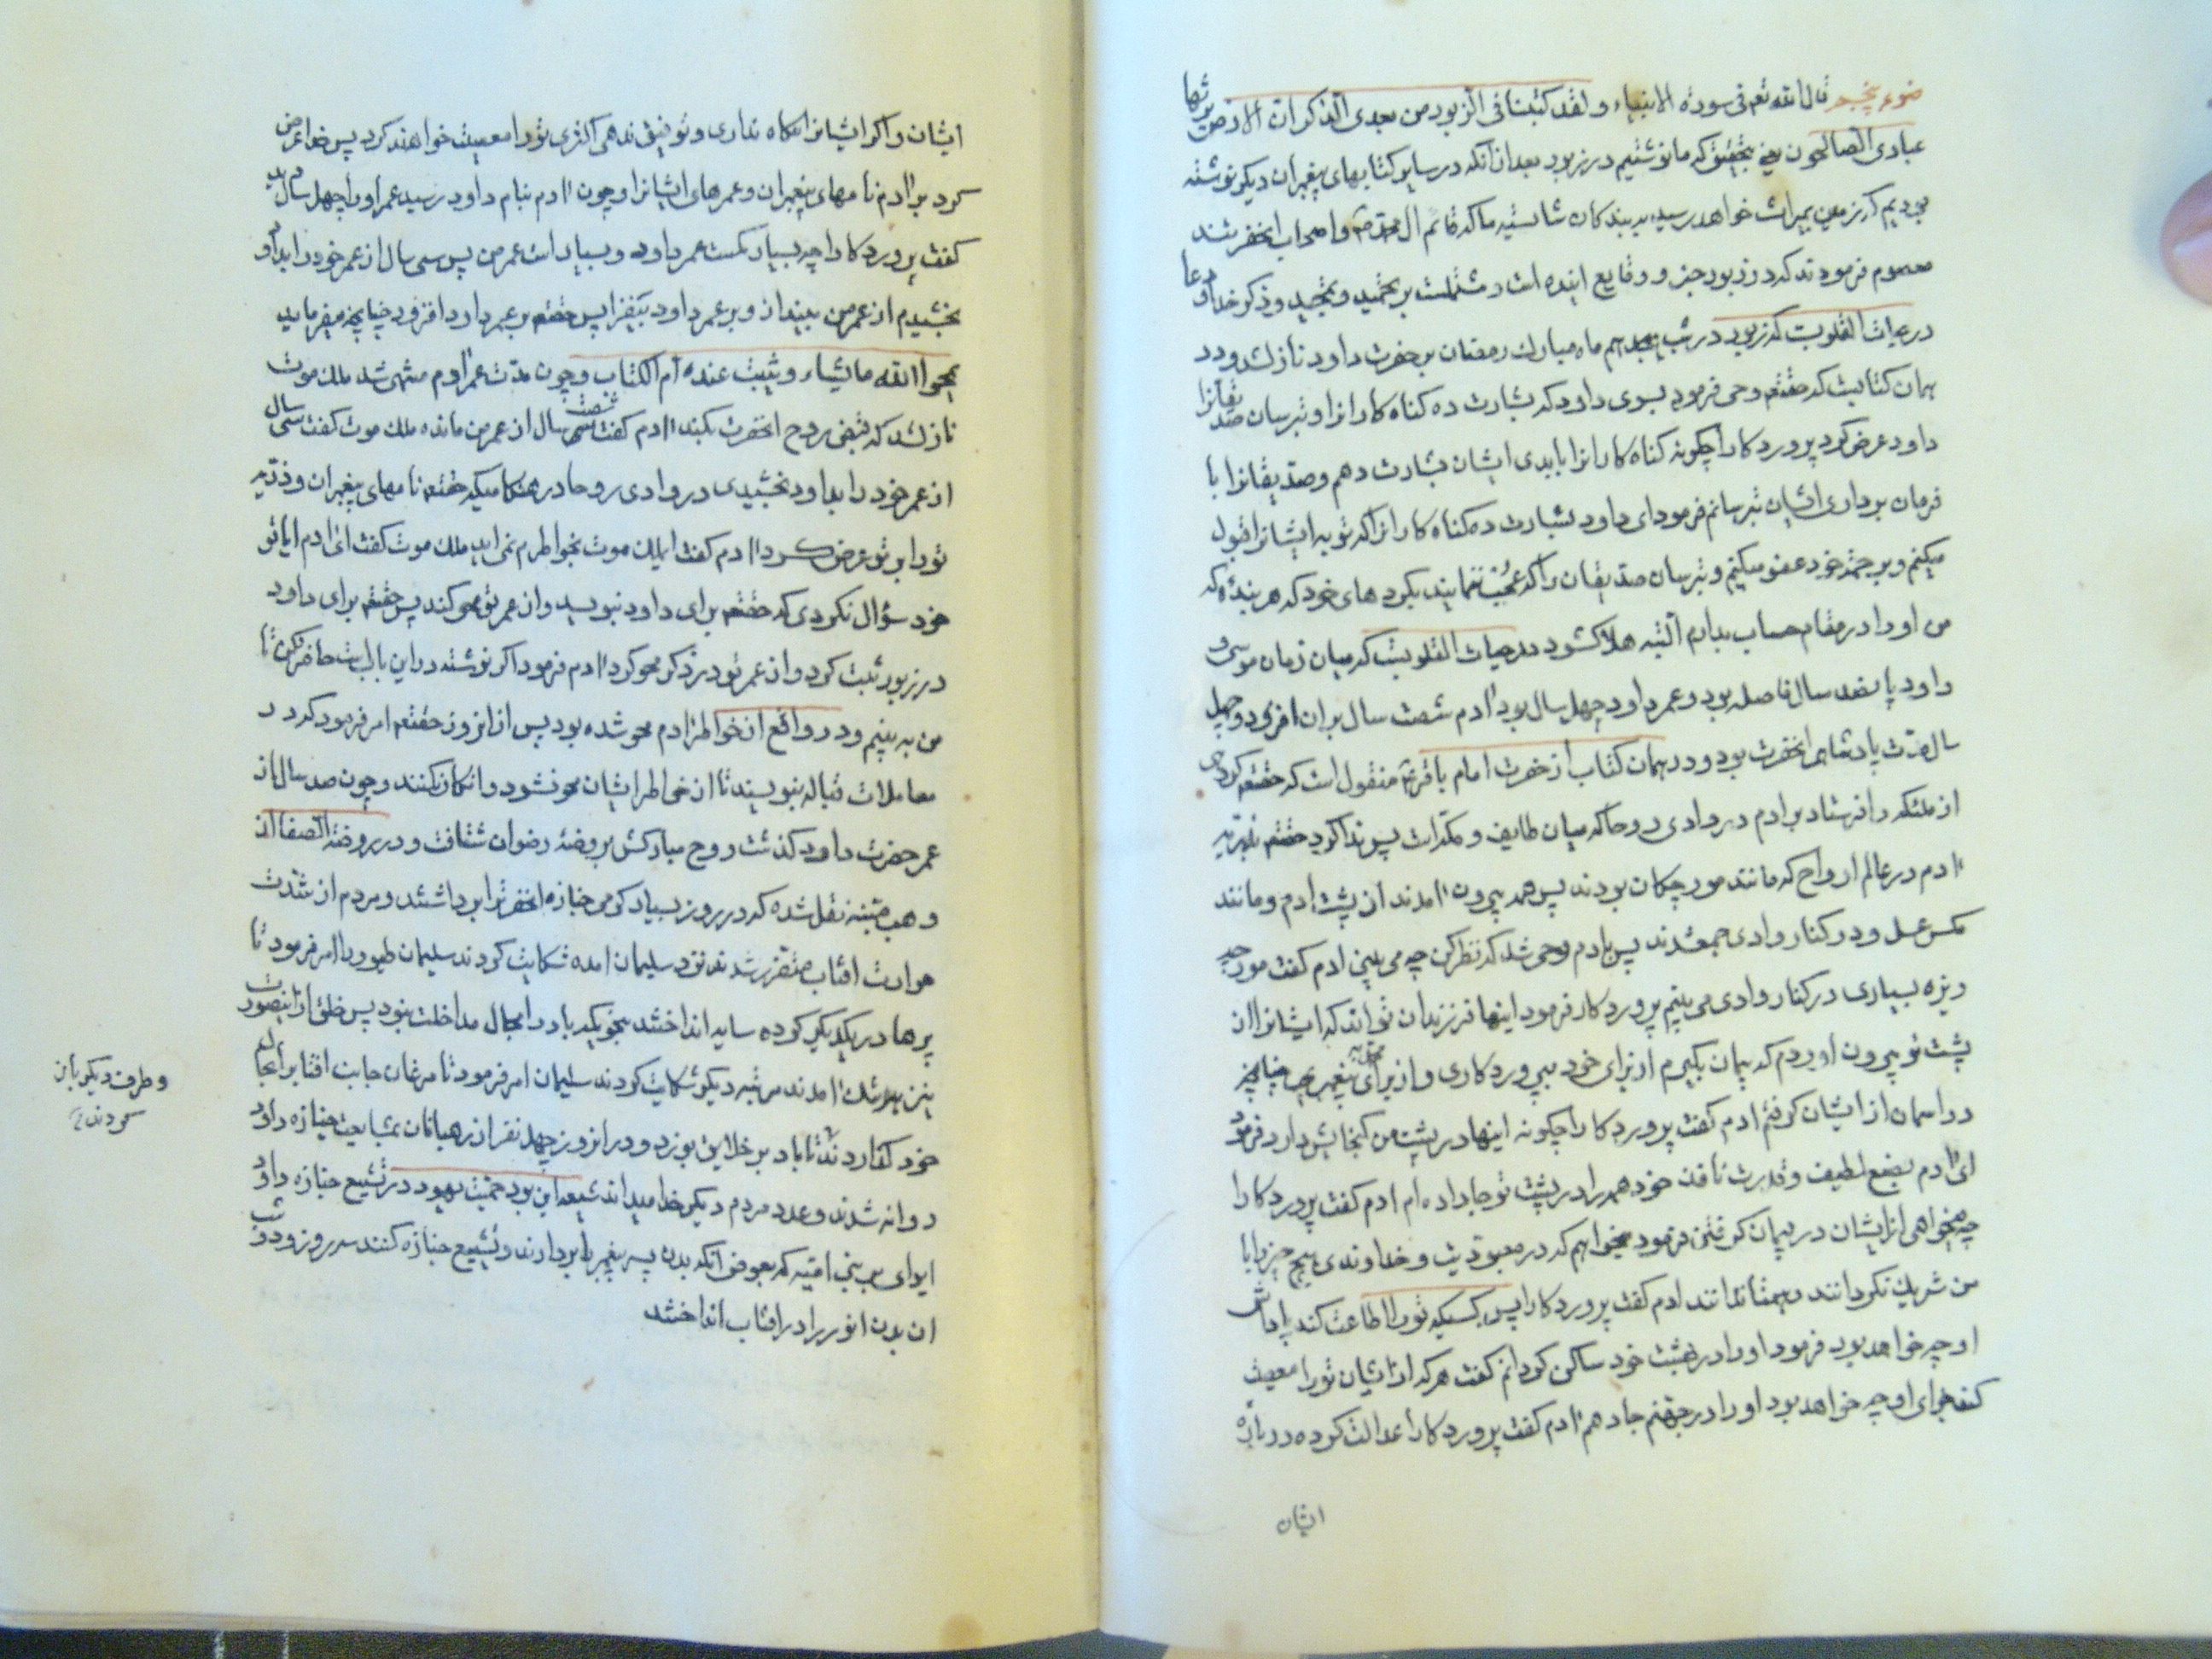 ضوء پنجم قال الله تعم فی سورة الانبیاء ولقد کتبنا فی الزبور من بعد الذکر ان الارض یرثها
عبادی الصالحون یعنی بتحقیق که ما نوشتیم در زبور بعد از آنکه در سایر کتابهای پیغمبران دیگر نوشته
بودیم که زمین بمیراث خواهد رسید به بندکان شایسته ما که قائم ال محمد و اصحاب انحضرتند
معصوم فرمودند که در زبور خبر و وقایع اینده است و مشتملست بر تحمید و تمجید و ذکر خدا و دعا
در حیات القلوبست که زبور در شب هیجدهم ماه مبارک رمضان بر حضرت داود نازل شد و در
همان کتابست که حقتعم وحی فرمود بسوی داود که بشارت ده کناه کارانرا و بترسان صدیقانرا
داود عرض کرد پرورد کارا چکونه کناه کارانرا با بدی ایشان بشارت دهم و صدیقانرا با
فرمان برداری ایشان بترسانم فرمود ای داود بشارت ده کناه کارانرا که توبه ایشانرا قبول
میکنم و برحمة خود عفو میکنم و بترسان صدیقان را که عجب ننمایند بکرد های خود که هر بندۀ که
من او را در مقام حساب بدارم البته هلاک شود در حیات القلوبست که میان زمان موسی و
داود پانصد سال فاصله بود و عمر داود چهل سال بود ادم شصت سال بران افزود و چهل
سال مدت پادشاهی انحضرت بود و در همان کتاب از حضرت امام باقر منقول است که حقتعم کروهی
از ملئکه را فرستاد بر ادم در وادی روحا که میان طایف و مکه است پس ندا کرد حقتعم بذریه
ادم در عالم ارواح که مانند مورچکان بودند پس همه بیرون امدند از پشت ادم و مانند
مکس عسل و در کنار وادی جمع شدند پس بادم وحی شد که نظر کن چه می بینی ادم کفت مورچه
ریزه بسیاری در کنار وادی می بینم پرورد کار فرمود اینها فرزندان تواند که ایشانرا از
پشت تو بیرون اوردم که پیمان بکیرم از برای خود بپرورد کاری و از برای محمد به پیغمبری چنانچه
در اسمان از ایشان کرفتم ادم کفت پرورد کارا چکونه اینها در پشت من کنجایش دارد فرمود
ای ادم بصنع لطیف و قدرت نافذ خود همه را در پشت تو جا داده ام ادم کفت پرورد کارا
چه میخواهی از ایشان در پیمان کرفتن فرمود میخواهم که در معبودیت و خداوندی هیچ چیز را با
من شریک نکردانند و بیمثانندانند ادم کفت پرورد کارا پس کسیکه تو را اطاعت کند پاداش
او چه خواهد بود فرمود او را در بهشت خود ساکن کردانم کفت هر که از ایشان تو را معصیت
کند جزای او چه خواهد بود او را در جهنم جا دهم ادم کفت پرورد کارا عدالت کرده در باره
ایشان
ایشان و اکر ایشانرا نکاه نداری و توفیق ندهی اکثری تو را معصیت خواهند کرد پس خدا عرض
کرد بر ادم نامهای پیغمبران و عمرهای ایشانرا و چون ادم بنام داود رسید عمر او را چهل سال دید
کفت پرورد کارا چه بسیار کمست عمر داود و بسیار است عمر من پس سی سال از عمر خود را بداود
بخشیدم از عمر من بینداز و بر عمر داود بیفزا پس حقتعم بر عمر داود افزود چنانچه میفرماید
یمحوا الله ما یشاء و یثبت عنده ام الکتاب و چون مدت عمر ادم منتهی شد ملک موت
نازل شد که قبض روح انحضرت بکند ادم کفت شصت سی سال از عمر من مانده ملک موت کفت سی سال
از عمر خود را بداود بخشیدی در وادی روحا در هنکامیکه حقتعم نامهای پیغمبران و ذریه
تو را بر تو عرض کرد ادم کفت ایملک موت بخواطرم نمیاید ملک موت کفت ای ادم ایا تو
خود سؤال نکردی که حقتعم برای داود بنویسد و از عمر تو محو کند پس حقتعم برای داود
در زبور ثبت کرد و از عمر تو در ذکر محو کرد ادم فرمود اکر نوشته در این باب است حاضر کن تا
من به بینم و در واقع از خواطر ادم محو شده بود پس از انروز حقتعم امر فرمود که در
معاملات قباله بنویسند تا از خواطر ایشان محو نشود و انکار نکنند و چون صد سال از
عمر حضرت داود کذشت روح مبارکش بروضۀ رضوان شتافت و در روضة الصفا از
وهب منبه نقل شده که در روز بسیار کرمی جنازه انحضرترا بر داشتند و مردم از شدت
حرارت افتاب متضرر شدند نزد سلیمان امده شکایت کردند سلیمان طیور را امر فرمود تا
پرها در یکدیکر کرده سایه انداختند بنحویکه باد را مجال مداخلت نبود پس خلق از اینصورت
نیز بهلاکت امدند مرتبه دیکر شکایت کردند سلیمان امر فرمود تا مرغان جانب افتاب را بحال
خود کذاردند تا باد بر خلایق بوزد و در انروز چهل نفر از رهبانان بمشایعت جنازه داود
روانه شدند و عدد مردم دیکر خدا میداند شیعه این بود حمیت یهود در تشییع جنازه داود
ایوای بر بنی امیه که بعوض انکه بدن پسر پیغمبر را بردارند و تشییع جنازه کنند سه روز و دو شب
ان بدن انور را در افتاب انداختند
و طرف دیکر باز
کردند